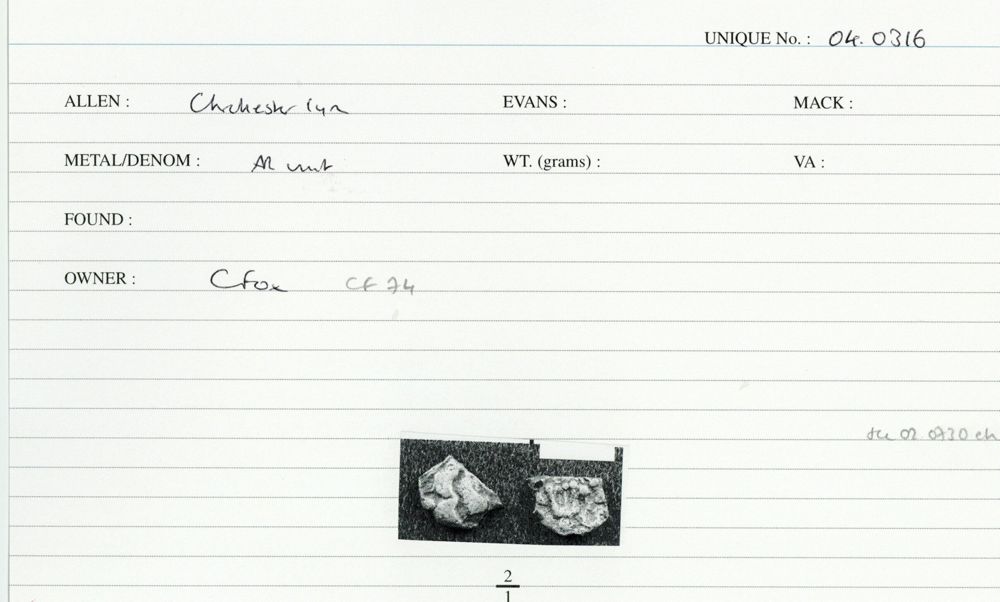 UNIQUE No. : 04. 0316
ALLEN : Chichester lyre EVANS : MACK :
METAL/DENOM : AR unit WT. (grams) : VA :
FOUND :
OWNER : C Fox CF 74
02 0730
2
1